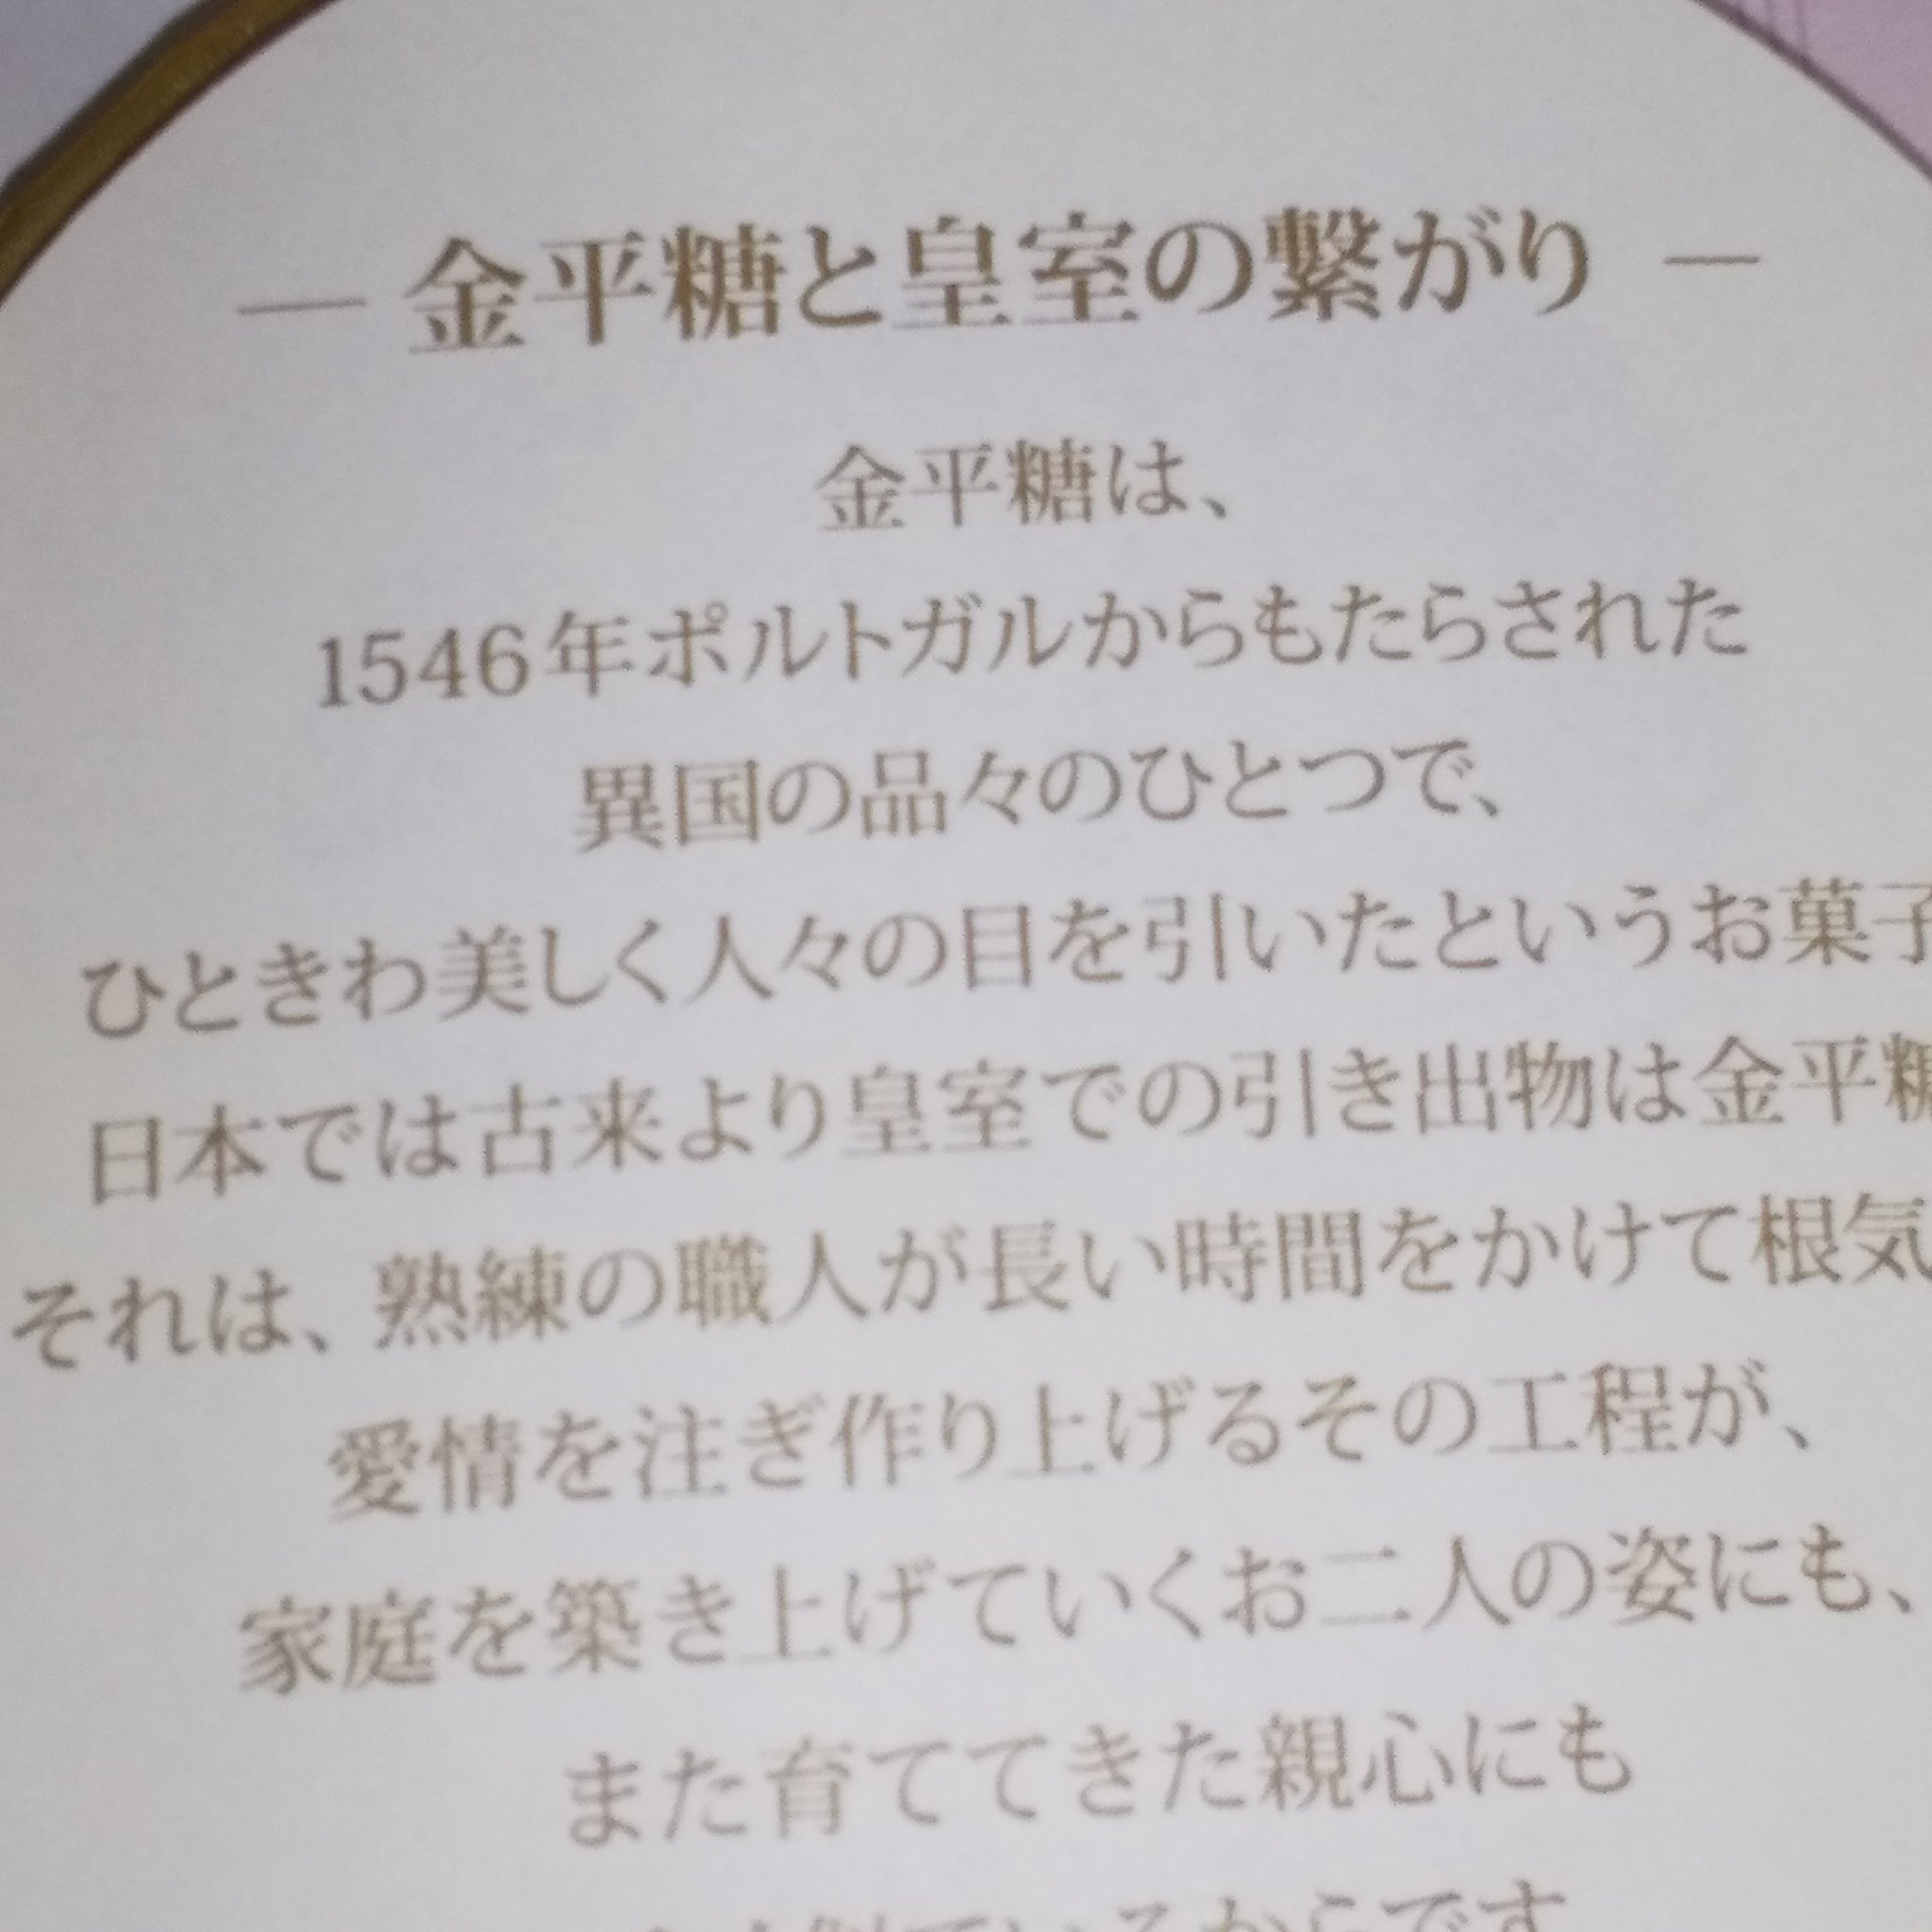 ― 金平糖と皇室の繋がり ―
金平糖は、
1546年ポルトガルからもたらされた
異国の品々のひとつで、
ひときわ美しく人々の目を引いたというお菓子
日本では古来より皇室での引き出物は金平糖
それは、熟練の職人が長い時間をかけて根気
愛情を注ぎ作り上げるその工程が、
家庭を築き上げていくお二人の姿にも、
また育ててきた親心にも
似ているからです